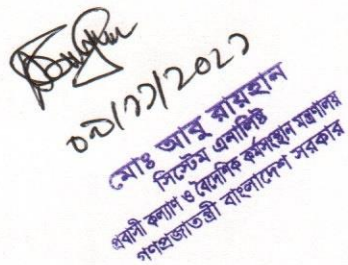 ০৯/১১/২০২১
মোঃ আবু রায়হান
সিস্টেম এনালিস্ট
প্রবাসী কল্যাণ ও বৈদেশিক কর্মসংস্থান মন্ত্রণালয়
গণপ্রজাতন্ত্রী বাংলাদেশ সরকার